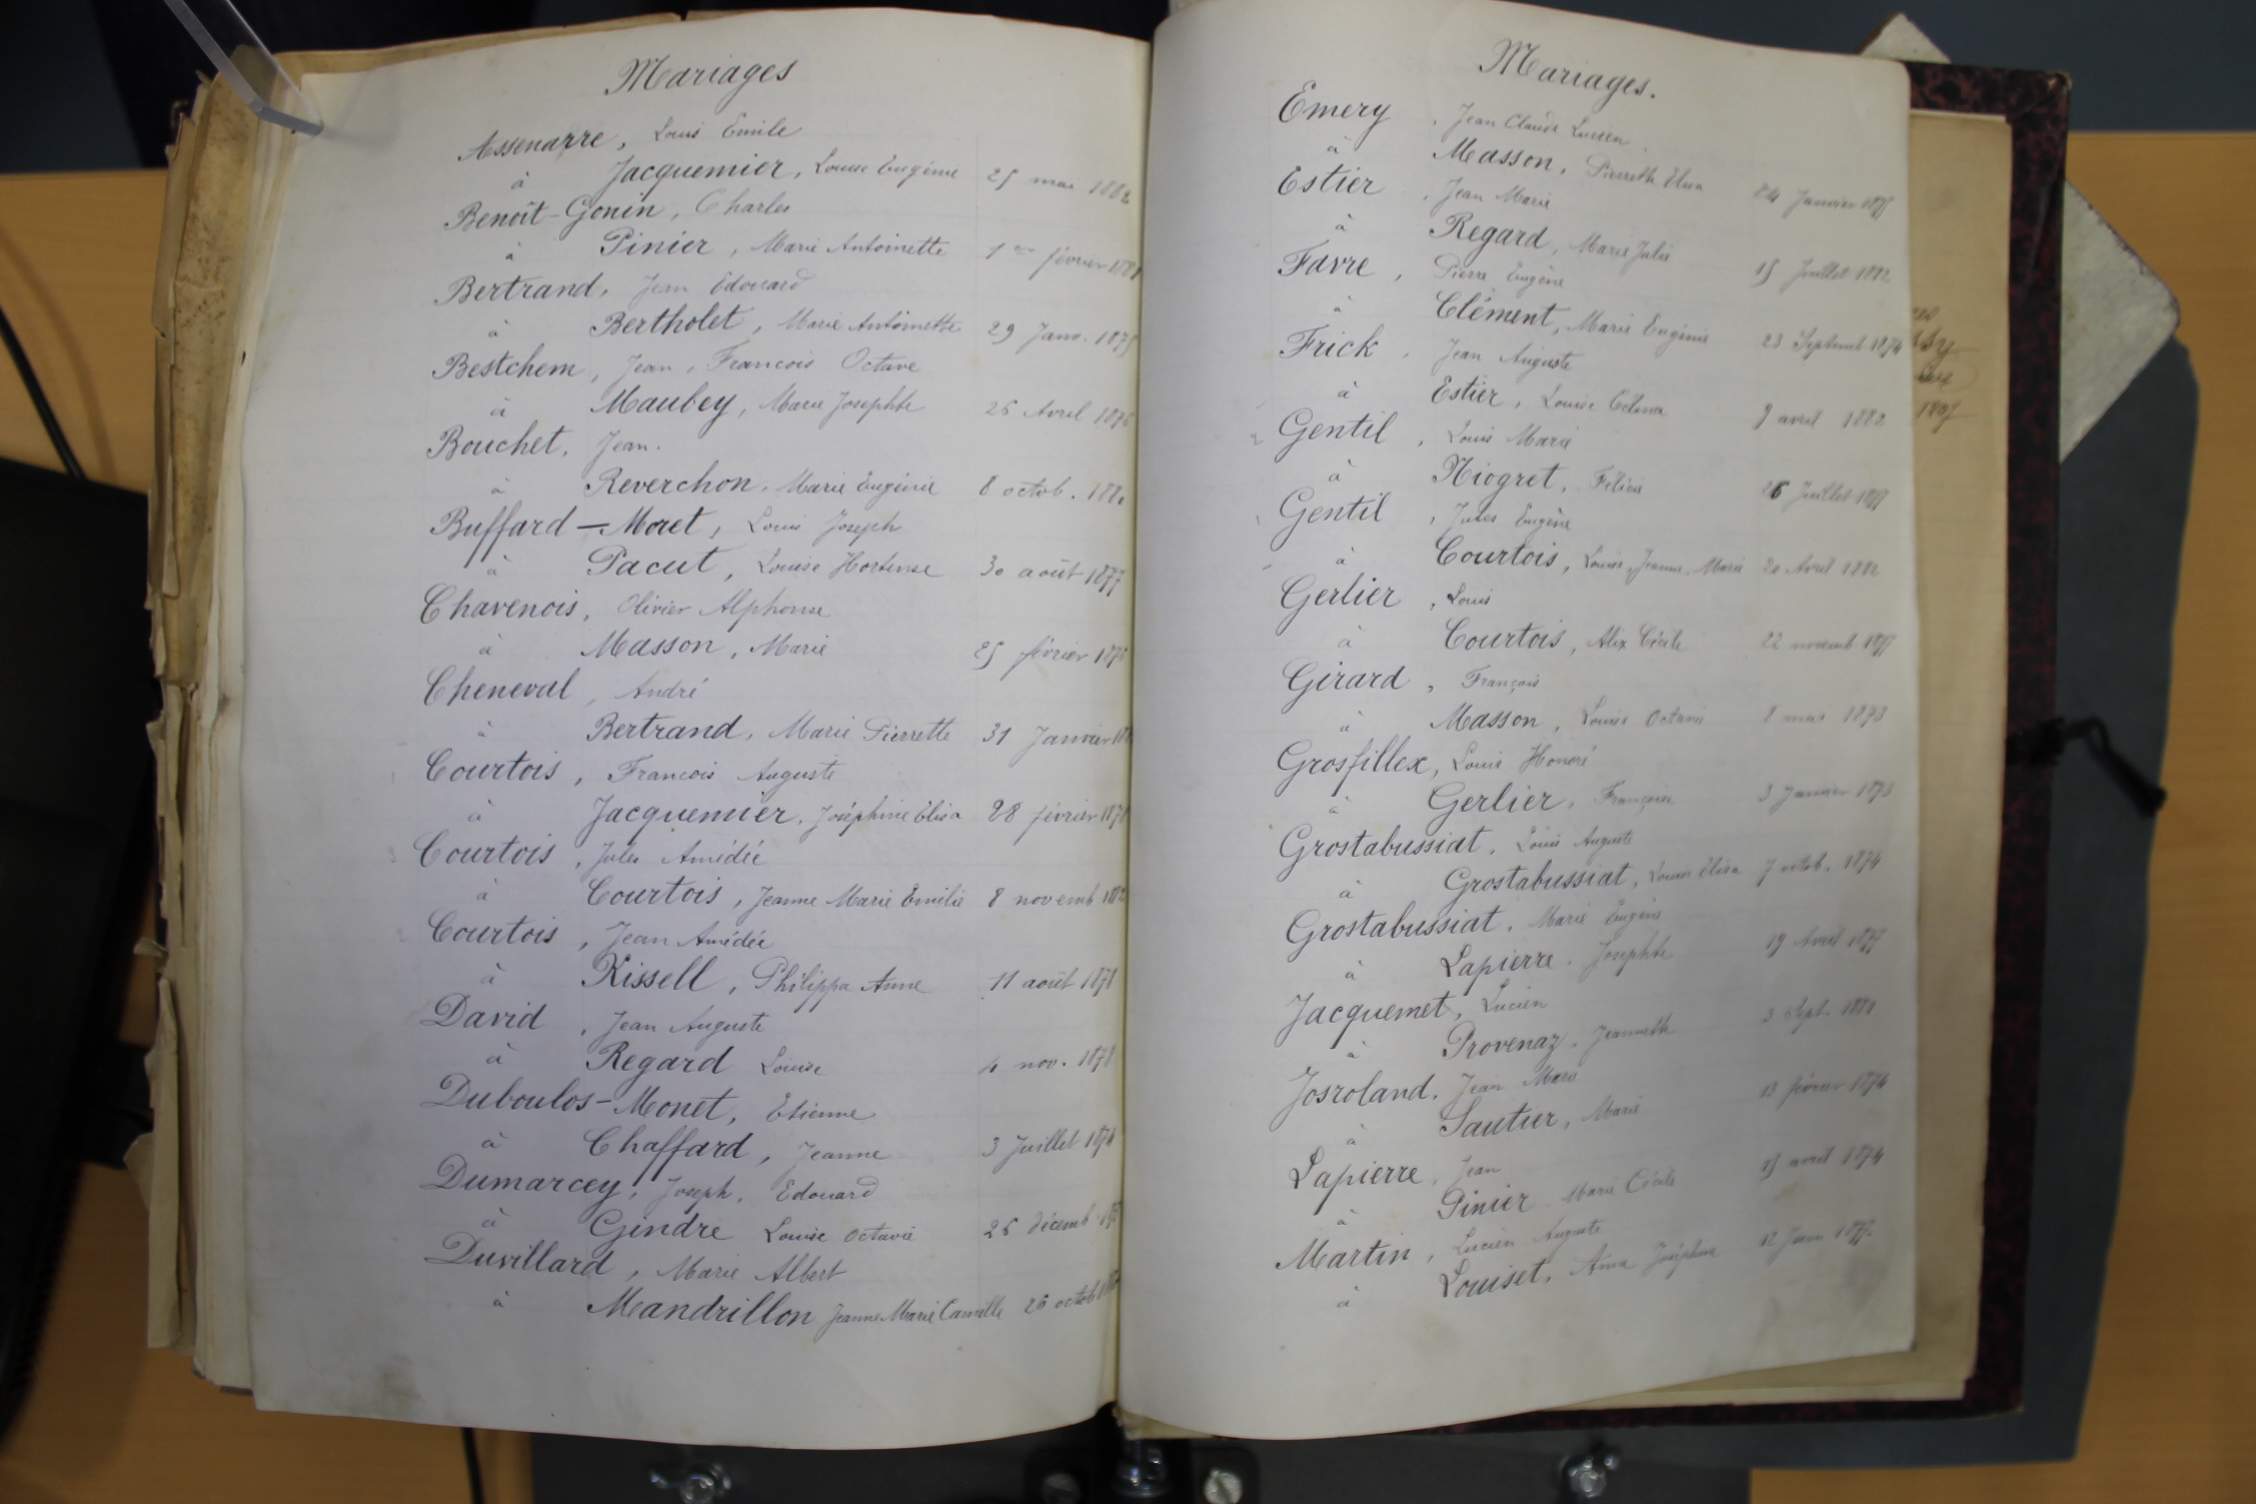 Mariages
Assenarre, Louis Emile
à Jacquemier, Louise Eugénie 25 mai 1882
Benoît-Gonin, Charles
à Pinier, Marie Antoinette 1er février 1881
Bertrand, Jean Edouard
à Bertholet, Marie Antoinette 29 Janv. 1875
Bestchem, Jean, Francois Octave
à Maubey, Marie Josephte 26 Avril 1876
Bouchet, Jean.
à Reverchon, Marie Eugénie 8 octob.
Buffard-Moret, Louis Joseph
à Pacut, Louise Hortense 30 août 1877
Chavenois, Olivier Alphonse
à Masson, Marie 25 février
Cheneval, André
à Bertrand, Marie Pierrette 31 Janvier
Courtois, Francois Auguste
à Jacquemier, Joséphine Elisa 28 février
Courtois, Jules Amédée
à Courtois, Jeanne Marie Emilie 8 novemb
Courtois, Jean Amédée
à Kissell, Philippa Anne 11 août 1878
David, Jean Auguste
à Regard Louise 4 nov. 1878
Duboulos-Monet, Etienne
à Chaffard, Jeanne 3 Juillet 1874
Dumarcey, Joseph, Edouard
à Gindre Louise Octavie 26 décemb.
Duvillard, Marie Albert
à Mandrillon Jeanne Marie Camille 26 octob
Mariages.
Emery, Jean Claude Lucien
à Masson, Pierrette Elisa 24 Janvier
Estier, Jean Marie
à Regard, Marie Julie 15 Juillet 1882
Favre, Pierre Eugène
à Clément, Marie Eugénie 23 Septemb 1874
Frick, Jean Auguste
à Estier, Louise Célina 9 avril 1882
Gentil, Louis Marie
à Niogret, Félicie 26 Juillet
Gentil, Jules Eugène
à Courtois, Louise, Jeanne, Marie 20 Avril 1882
Gerlier, Louis
à Courtois, Alix Cécile 22 novemb
Girard, François
à Masson, Louise Octavie 8 mai 1873
Grosfillex, Louis Honoré
à Gerlier, Françoise 3 Janvier 1873
Grostabussiat, Louis Auguste
à Grostabussiat, Louise Elisa 7 octob. 1874
Grostabussiat, Marie Eugène
à Lapierre, Josephte 19 Avril
Jacquemet, Lucien
à Provenaz, Jeannette 3 Sept.
Josroland, Jean Marie
à Sautier, Marie 13 février 1874
Lapierre, Jean
à Pinier Marie Cécile 15 avril 1874
Martin, Lucien Auguste
à Louiset, Joséphine 12 Juin